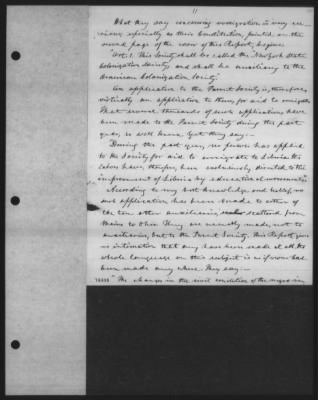 11
What they say concerning emigration is very ser-
ious, especially as their Constitution, printed on the
second page of the cover of this Report, begins:
"Art. 1. This Society shall be called the New York State
Colonization Society and shall be auxiliary to the
American Colonization Society."
An application to the Parent Society is, therefore,
virtually an application to them, for aid to emigrate.
That several thousands of such applications have
been made to the Parent Society during the past
year, is well known. Yet they say:—
"During the past year, no person has applied
to the Society for aid to emigrate to Liberia. Its
labors have, therefore, been exclusively directed to the
improvement of Liberia by educational movements."
According to my best knowledge and belief, no
such application has been made to either of
the ten other auxiliaries, scattered from
Maine to Ohio. They are usually made, not to
auxiliaries, but to the Parent Society. This Report gives
no intimation that any have been made at all. Its
whole language on this subject is as if none had
been made any where. They say:—
"The changes in the civil condition of the negro in